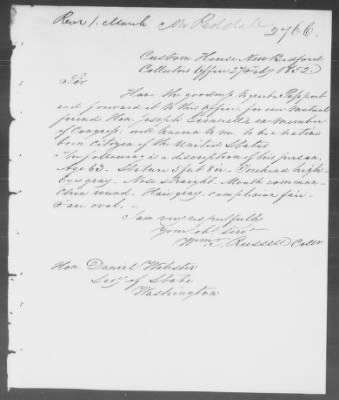 Recd 1. March Mr Reddall 2766
Custom House New Bedford
Collectors Office 27 Feby 1852
Sir
Have the goodness to write Passport
and forward it to this office, for our mutual
friend Hon. Joseph Grinnell ex member
of Congress, well known to me to be a native
born citizen of the United States
The following is a description of his person
Age 63. Stature 5 feet 8 in. Forehead high
Eyes gray. Nose straight. Mouth common
Chin round. Hair gray. complexion fair
Face oval.
I am very respectfully
Your obt. Servt
Wm. T. Russell Collr
Hon. Daniel Webster
Secy of State
Washington